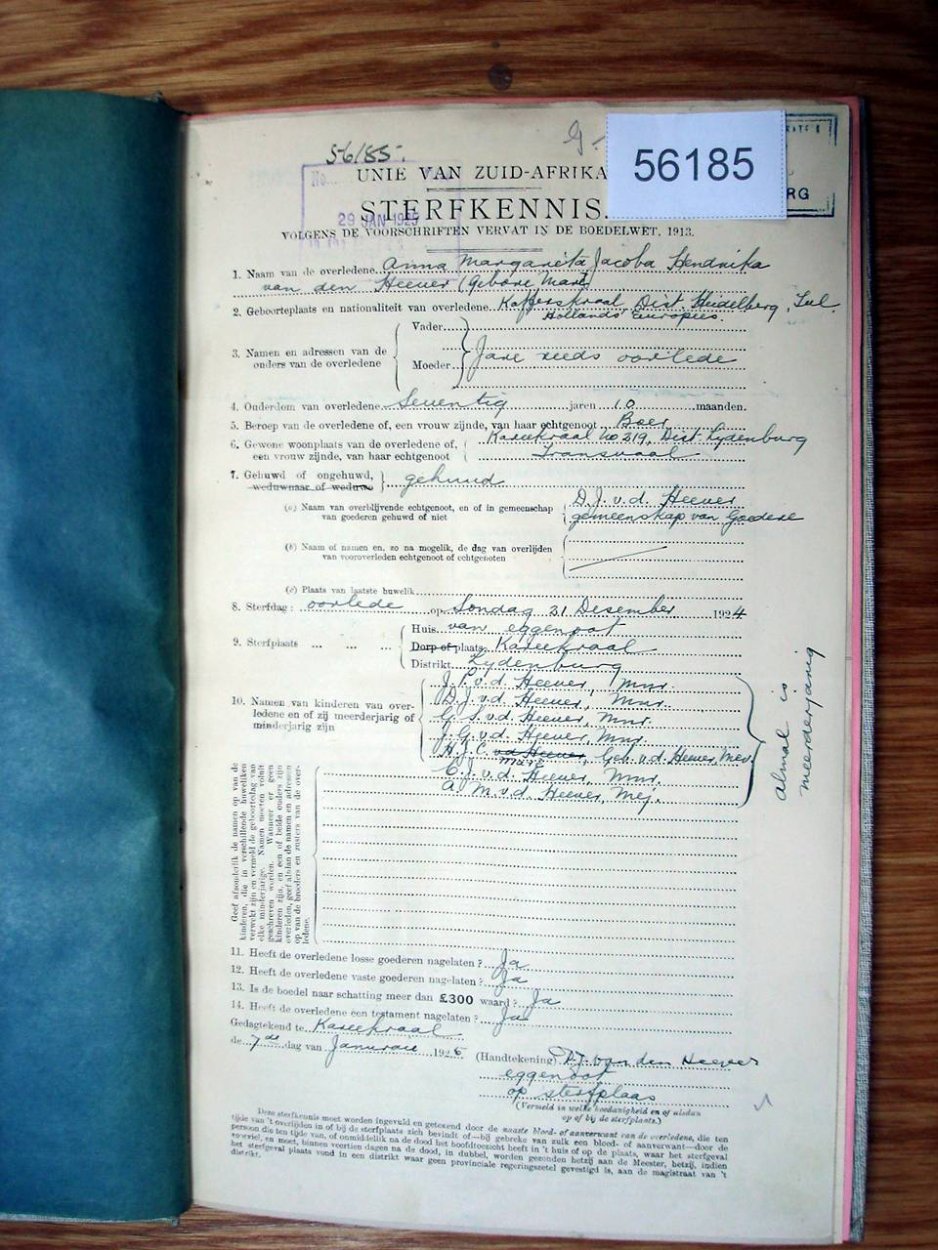 56185.
G.
56185
RG
No.
UNIE VAN ZUID-AFRIKA
STERFKENNIS.
29 JAN 1925
VOLGENS DE VOORSCHRIFTEN VERVAT IN DE BOEDELWET, 1913.
1. Naam van de overledene Anna Margarita Jacoba Hendrika
van den Heever (Gebore Maré)
2. Geboorteplats en nationaliteit van overledene Kafferskraal Dist. Heidelberg,
Hollands Europees.
3. Namen en adressen van de onders van de overledene
Vader
Moeder
Jare reeds oorlede
4. Ouderdom van overledene Seventig jaren 10 maanden.
5. Beroep van de overledene of, een vrouw zijnde, van haar echtgenoot Boer
6. Gewone woonplaats van de overledene of, Kareekraal No 219, Dist. Lydenburg
een vrouw zijnde, van haar echtgenoot Transvaal
7. Gehuwd of ongehuwd, weduwnaar of weduwe gehuud
(a) Naam van overblijvende echtgenoot, en of in gemeenschap D. J. v. d. Heever
van goederen gehuwd of niet gemeenskap van Goedere
(b) Naam of namen en, zo na mogelik, de dag van overlijden
van vooroverleden echtgenoot of echtgenoten
(c) Plaats van laatste huwelik
8. Sterfdag: oorlede op Sondag 21 Desember 1924
9. Sterfplaats ... ... ...
Huis van eggenoot
Dorp of plaats Kareekraal
Distrikt Lydenburg
10. Namen van kinderen van over-
ledene en of zij meerderjarig of
minderjarig zijn
J. P. v. d. Heever, Mnr.
D. J. v. d. Heever, Mnr.
G. S. v. d. Heever, Mnr.
J. G. v. d. Heever, Mnr.
H. J. C. v d Heever, Geb. v. d. Heever, Mev.
Maré
C. J. v. d. Heever, Mnr.
A. M. v. d. Heever, Mej.
Almal is
meerderjarig
Geef afzonderlik de namen op van de
kinderen, die in verschillende huweliken
verwekt zijn en vermeld de geboortedag van
elke minderjarige. Namen moeten voluit
geschreven worden. Wanneer er geen
kinderen zijn, en een of beide ouders zijn
overleden, geef alsdan de namen en adressen
op van de broeders en zusters van de over-
ledene.
11. Heeft de overledene losse goederen nagelaten? Ja
12. Heeft de overledene vaste goederen nagelaten? Ja
13. Is de boedel naar schatting meer dan £300 waard? Ja
14. Heeft de overledene een testament nagelaten? Ja
Gedagtekend te Kareekraal
de 7de dag van Januarie 1925
(Handtekening) D. J. van den Heever
eggenoot
op sterfplaas
(Vermeld in welke hoedanigheid en of alsdan
op of bij de sterfplaats.)
Deze sterfkennis moet worden ingevuld en getekend door de naaste bloed- of aanverwant van de overledene, die ten
tijde van 't overlijden in of bij de sterfplaats zich bevindt of—bij gebreke van zulk een bloed- of aanverwant—door de
persoon die ten tijde van, of onmiddelik na de dood het hoofdtoezicht heeft in 't huis of op de plaats, waar het sterfgeval
voorviel, en moet, binnen veertien dagen na de dood, in dubbel, worden gezonden hetzij aan de Meester, hetzij, indien
het sterfgeval plaats vond in een distrikt waar geen provinciale regeringszetel gevestigd is, aan de magistraat van 't
distrikt.